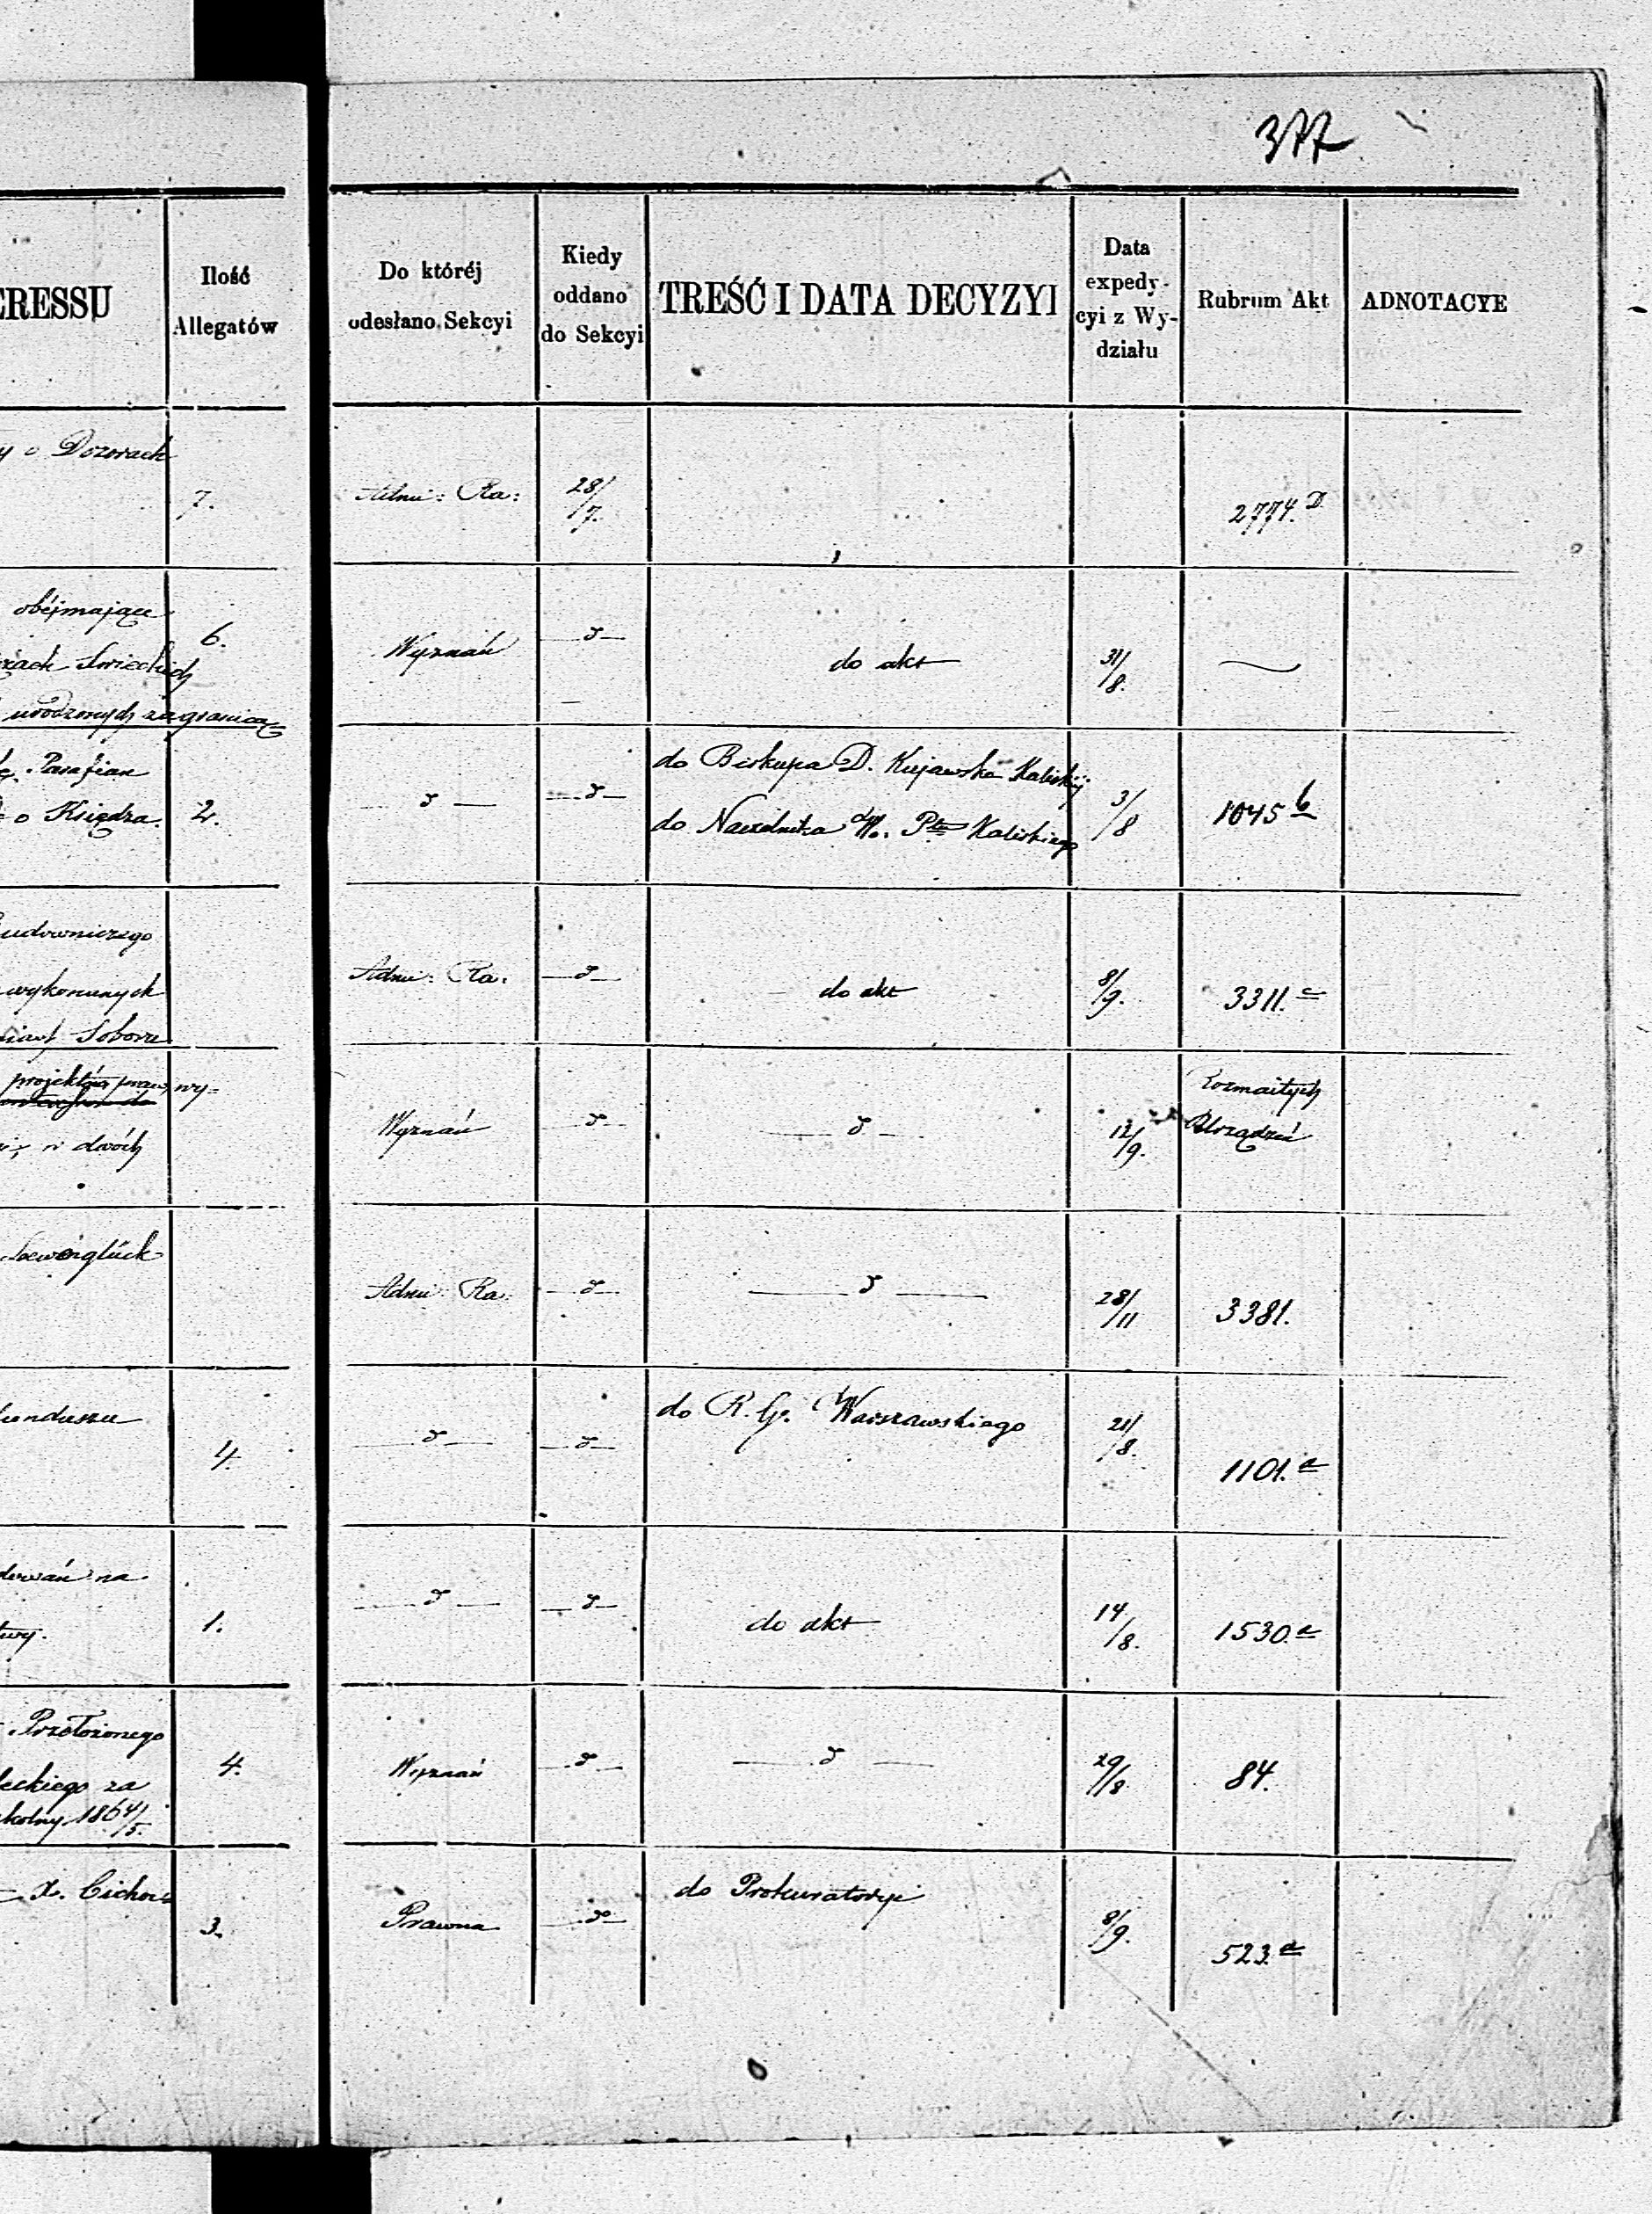 377
ERESSU
Ilość
Allegatów
Do któréj
odesłano Sekcyi
Kiedy
oddano
do Sekcyi
TREŚĆ I DATA DECYZYI
Data
expedy-
cyi z Wy-
działu
Rubrum Akt
ADNOTACYE
y o Dozorach
7.
Admi: Ra:
28/7.
2774. D.
obéjmające
6.
Swieckich
urodzonych zagranicą
Wyznań
do akt
31/8.
Parafian
o Księdza.
2.
do Biskupa D. Kujawsko Kaliskiéj
do Naczelnika W. Ptu Kaliskiego
3/8
1045 b
udowniczego
wykonanych
Soboru
Admi: Ra:
do akt
8/9.
3311. c
projektów praw, wy=
w dwóch
Wyznań
12/9.
Rozmaitych
Urządzeń
Loewenglück
Admi: Ra:
28/11
3381.
Funduszu
4.
do R. G. Warszawskiego
21/8.
1101. a
dowań na
1.
do akt
14/8.
1530. a
Przełożonego
leckiego za
szkolny 1864/5.
4.
Wyznań
29/8
84.
X. Cichor
3.
Prawna
do Prokuratoryi
8/9.
523. a